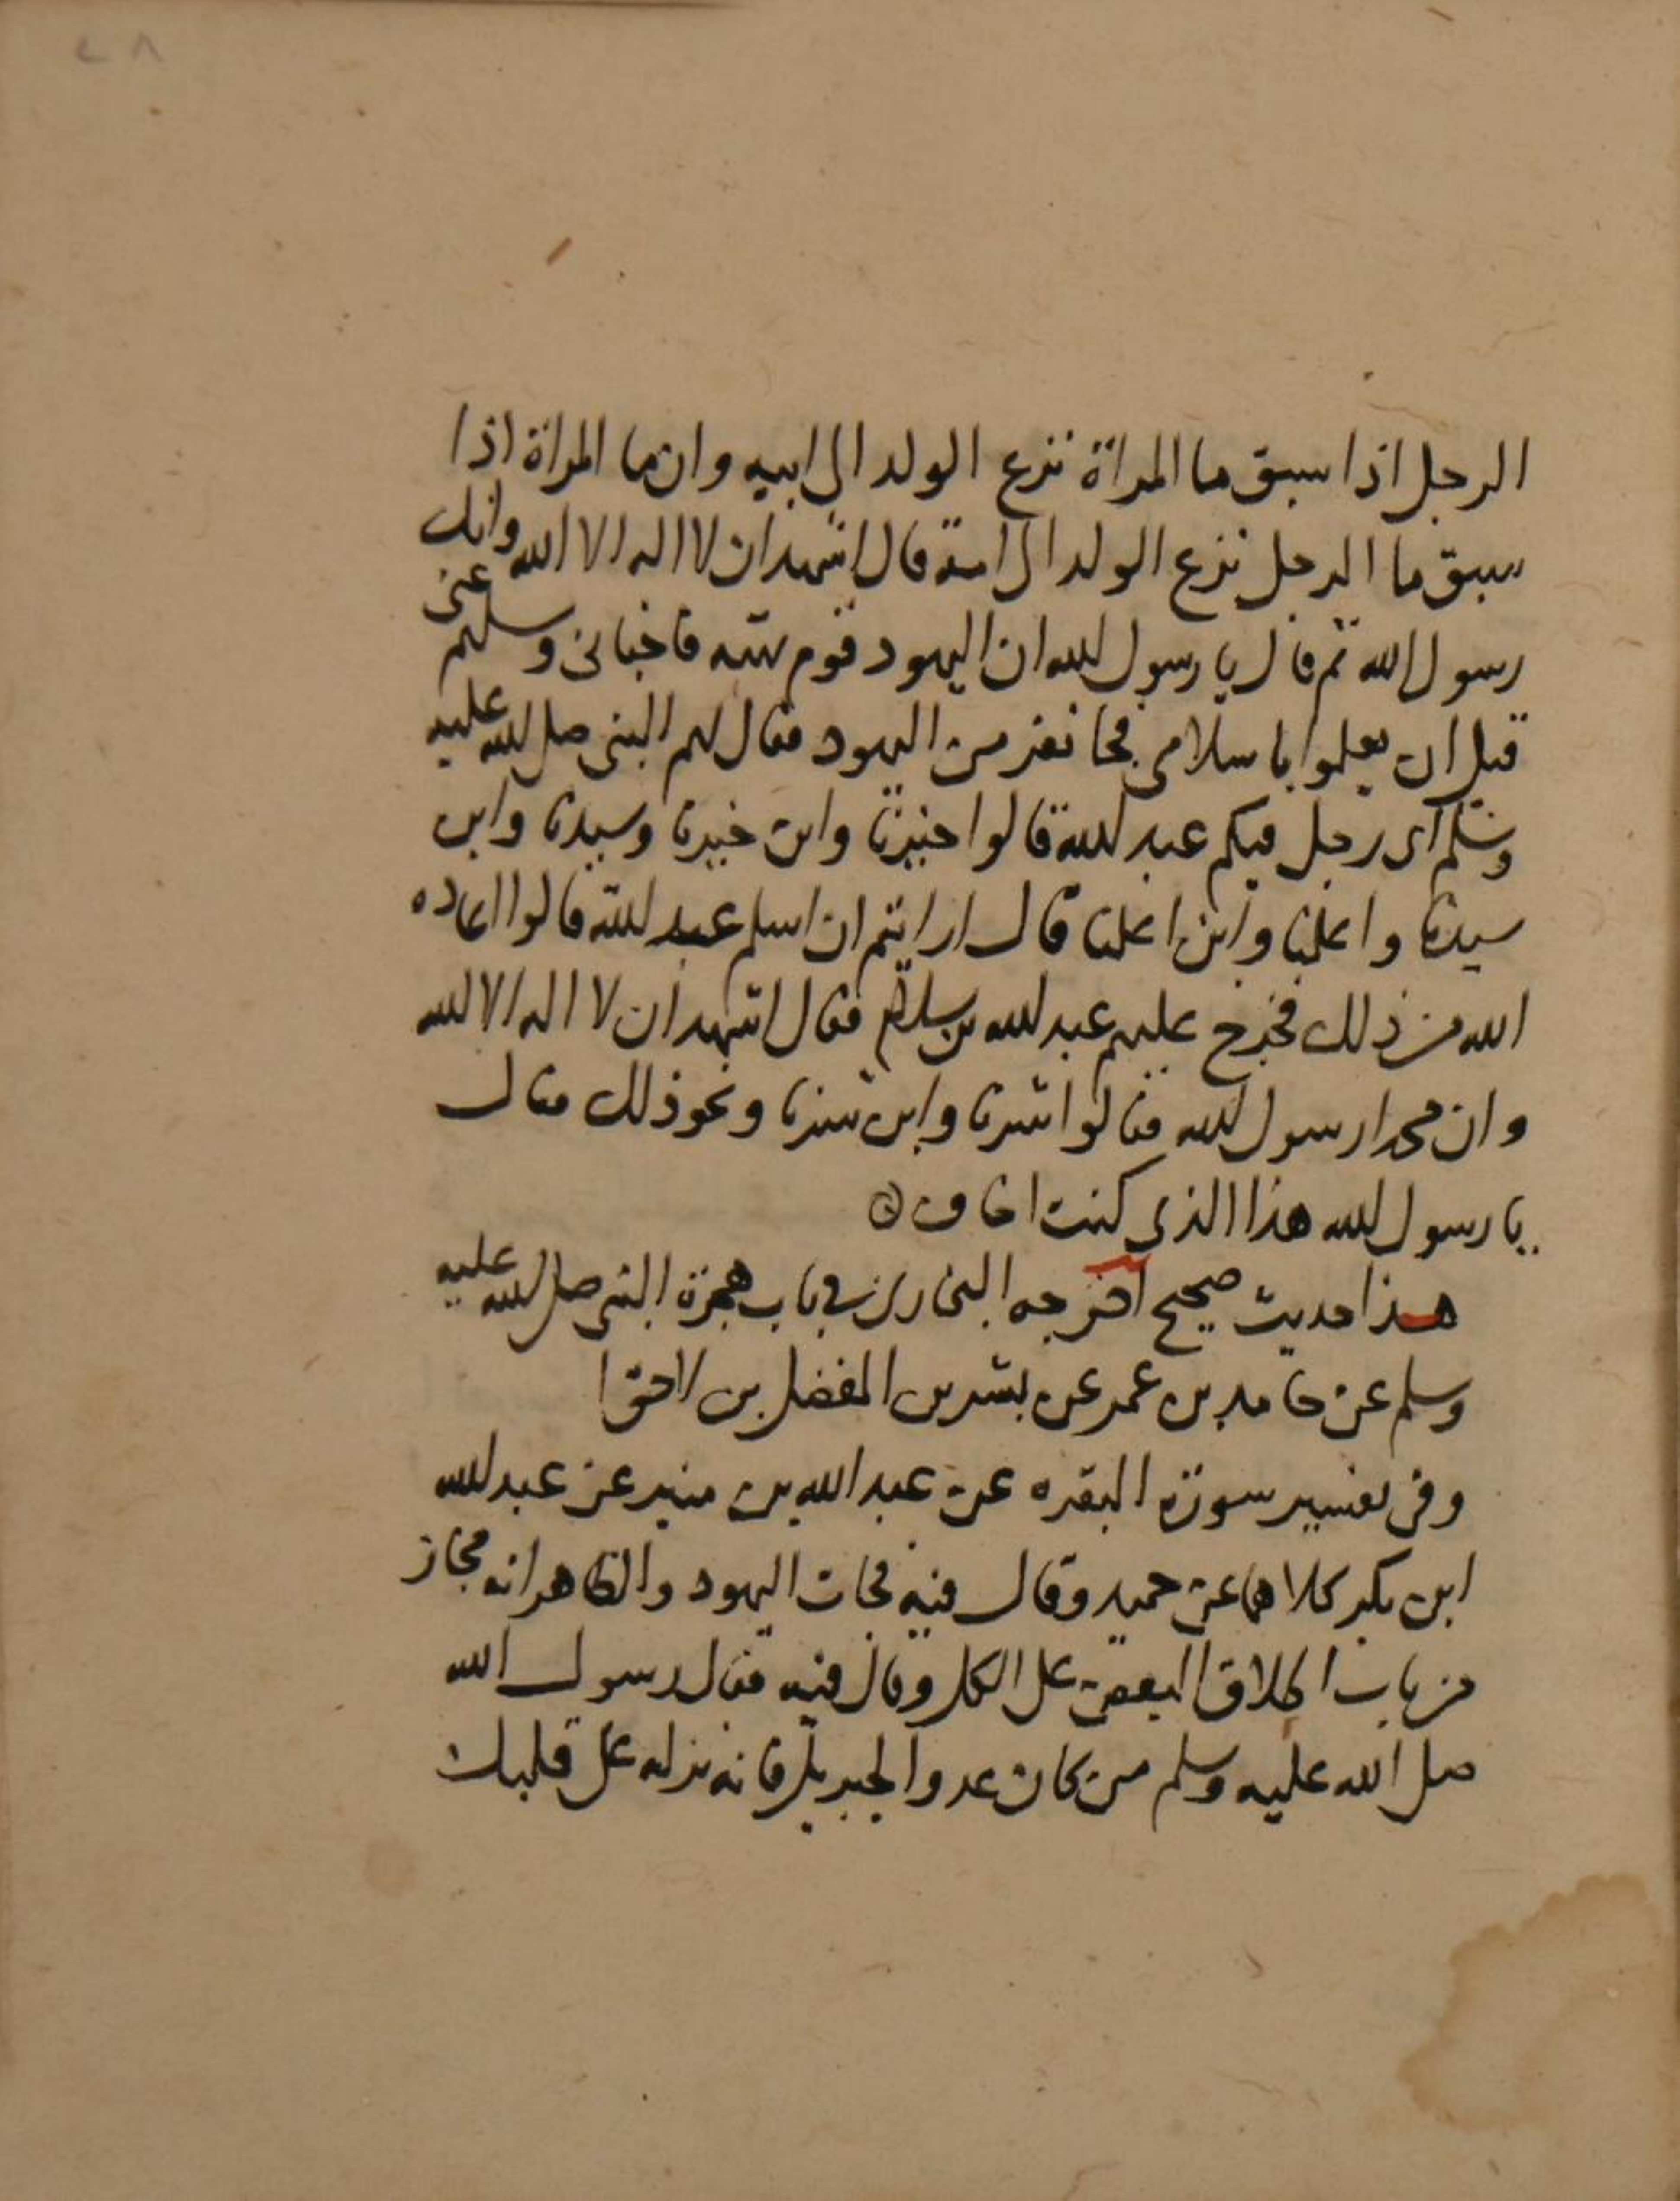 ٢٨
الرجل اذا سبق ما المراة نزع الولد الى ابيه وان ما المراة اذا
سبق ما الرجل نزع الولد الى امه قال اشهد ان لا اله الا الله وانك
رسول الله ثم قال يا رسول الله ان اليهود قوم بهته فاخبانى وسلهم عنى
قبل ان يعلموا باسلامى فجا نفر من اليهود فقال لهم النبى صلى الله عليه
وسلم اى رجل فيكم عبد الله قالوا خيرنا وابن خيرنا وسيدنا وابن
سيدنا واعلمنا وابن اعلمنا قال ارايتم ان اسلم عبد الله قالوا اعاده
الله من ذلك فخرج عليهم عبد الله بن سلام فقال اشهد ان لا اله الا الله
وان محمدا رسول الله فقالوا شرنا وابن شرنا ونحو ذلك فقال
يا رسول الله هذا الذى كنت اخاف
هذا حديث صحيح اخرجه البخارى فى باب هجرة النبى صلى الله عليه
وسلم عن حامد بن عمر عن بشر بن المفضل بن لاحق
وفى تفسير سورة البقره عن عبد الله بن منير عن عبد الله
ابن بكر كلاهما عن حميد وقال فيه فجات اليهود والظاهر انه مجاز
من باب اطلاق البعض على الكل وقال فيه فقال رسول الله
صلى الله عليه وسلم من كان عدوا لجبريل فانه نزله على قلبك